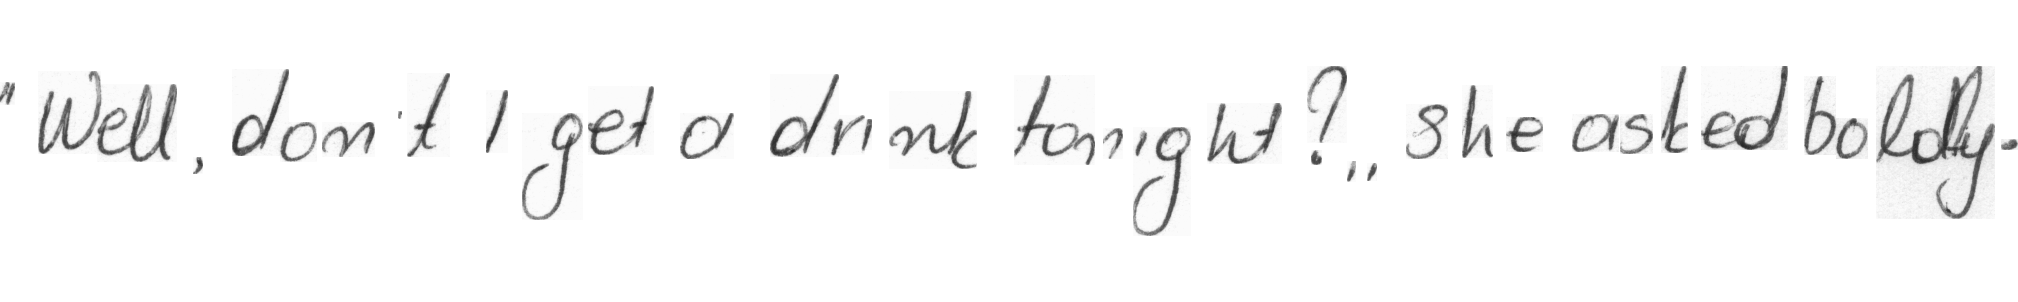 "Well, don't I get a drink tonight?,, she asked boldly.